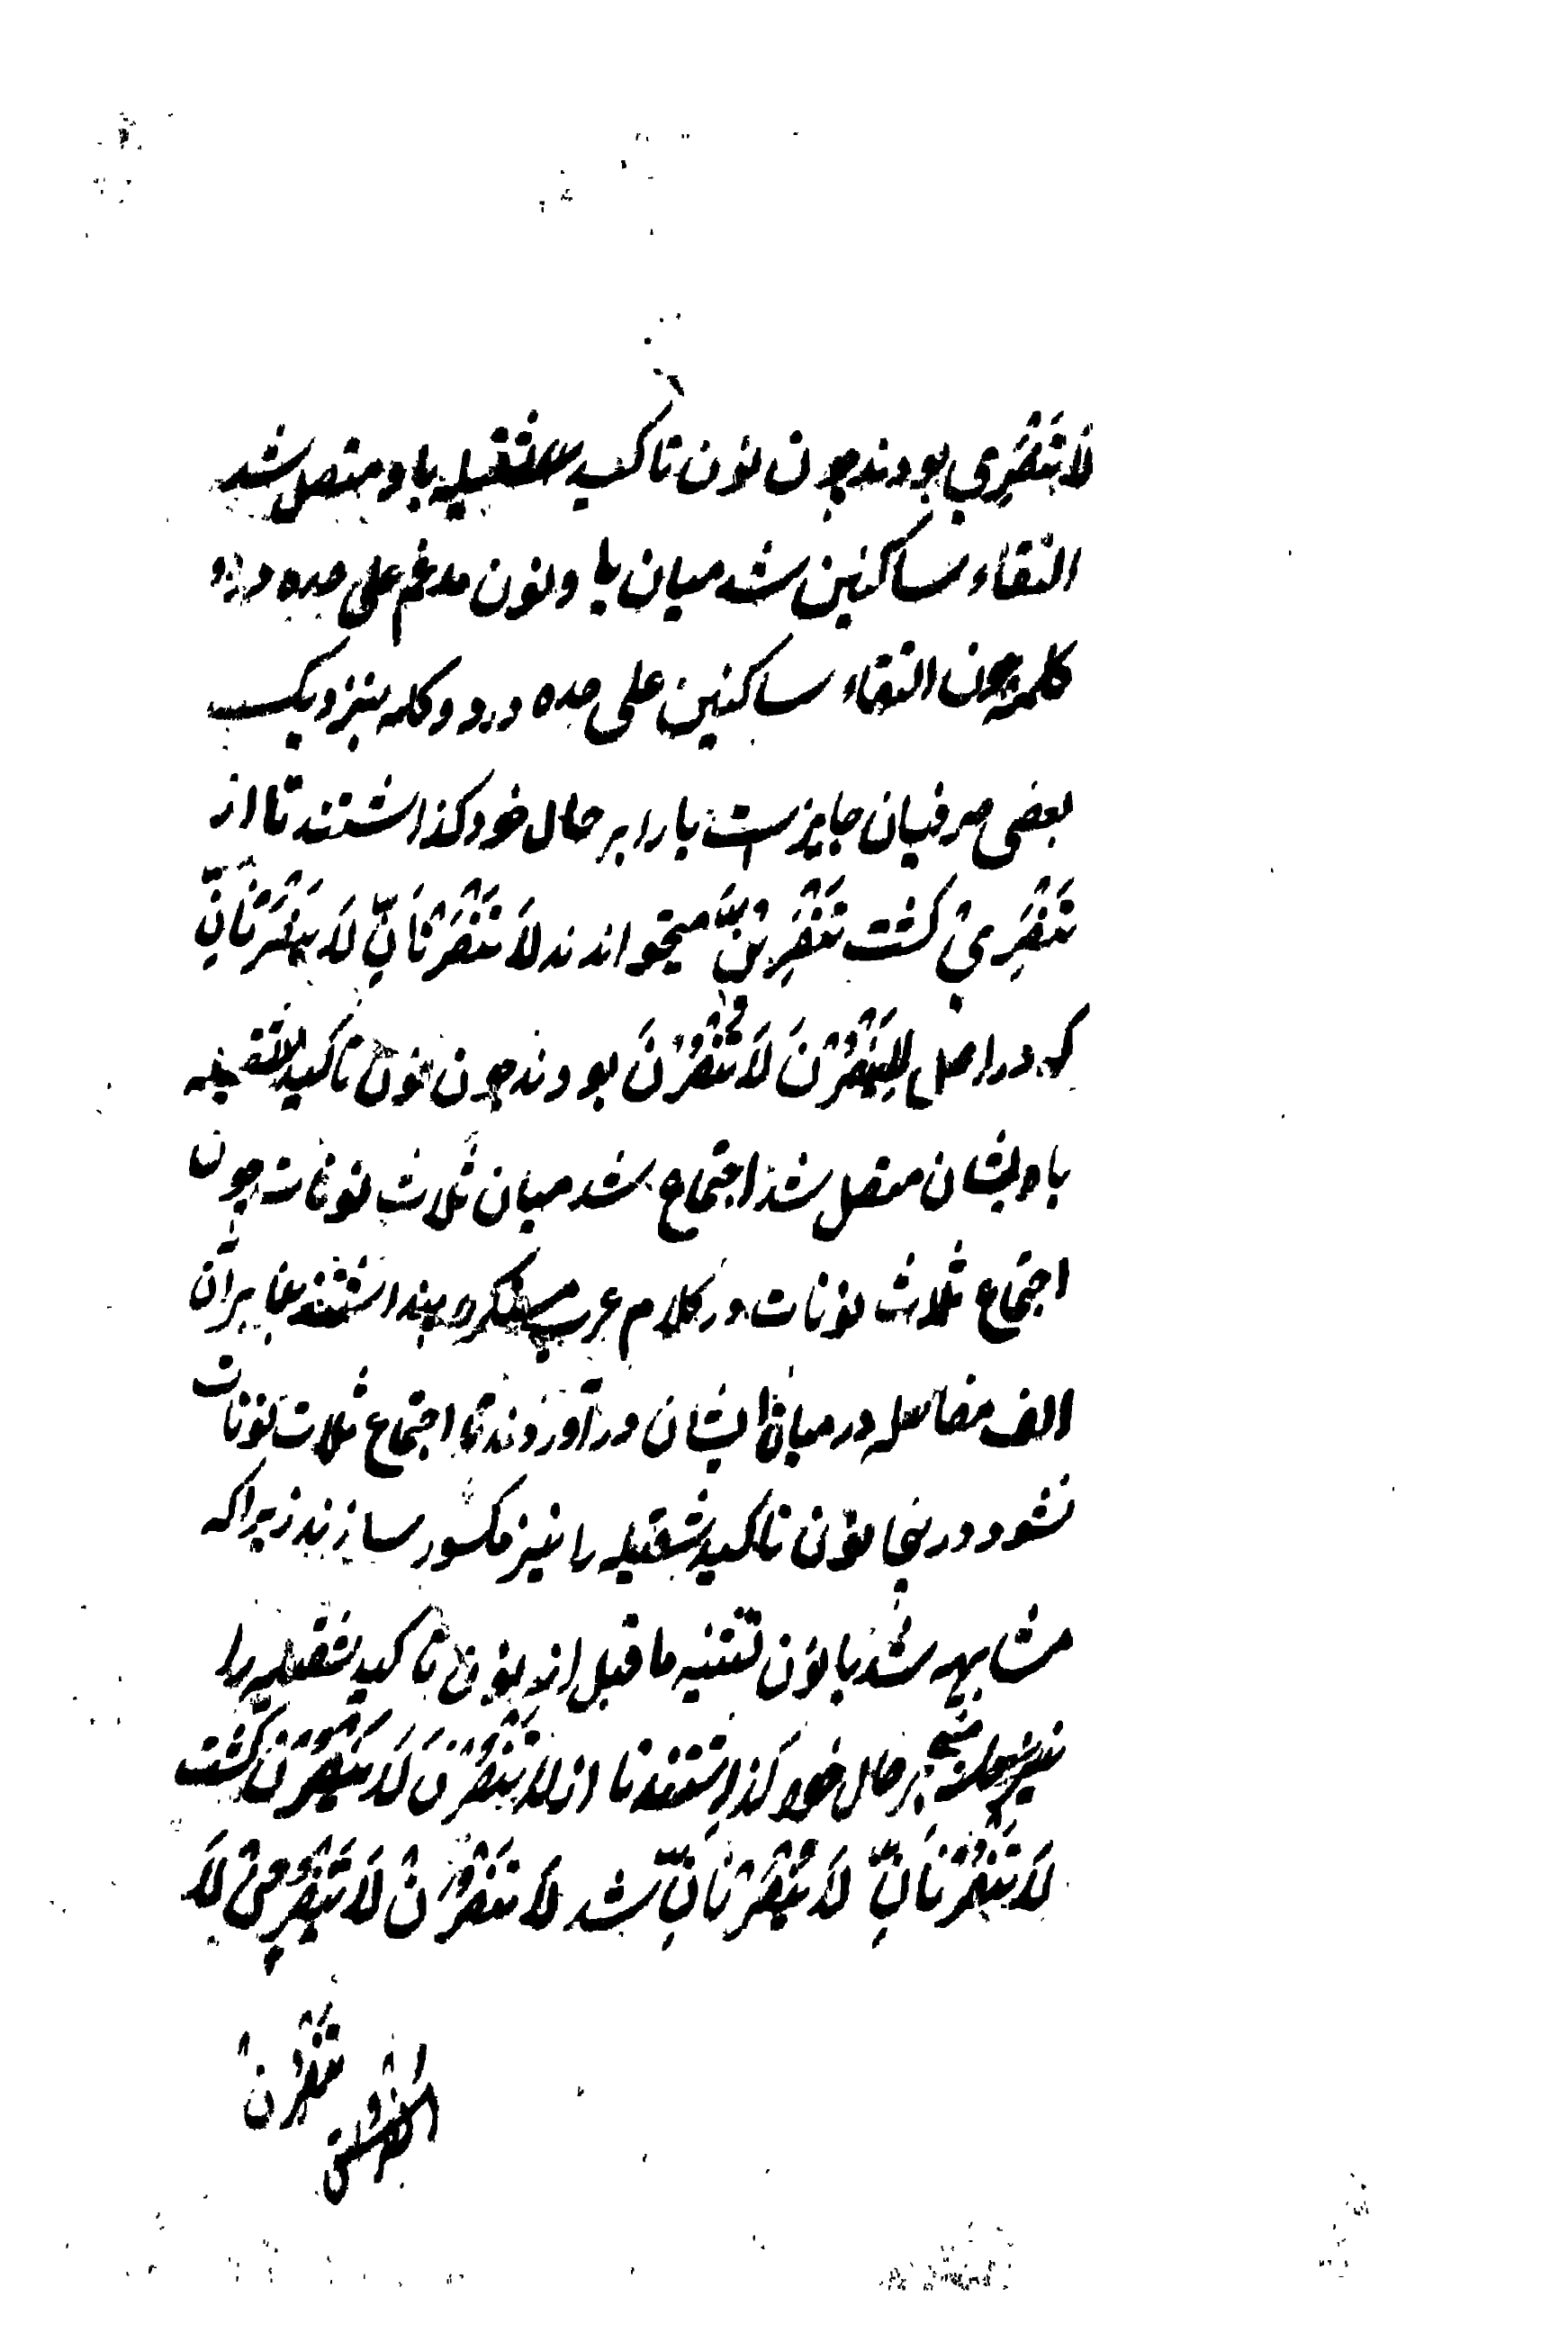 لَا تَنْصُرِي بودند چون نون تاکید ثقیله باو متصل شد
التقاء ساکنین شد میان یا و نون مدغم علی حده در دو
کلمه چون التقاء ساکنین علی حده در دو کلمه بنزدیک
بعضی صرفیان جایزست یا را بر حال خود کذاشتند تا از
تَنْصُرِیْ کشت تَنْصُرِیْنَّ میخواندند لَا تَنْصُرْنَانِّ لَا یَنْصُرْنَانِّ
که در اصل لَا یَنْصُرْنَ لَا تَنْصُرْنَ بودند چون نون تاکید ثقیله
با ایشان متصل شد اجتماع شد میان ثلاث نونات چون
اجتماع ثلاث نونات در کلام عرب مستکره پنداشتند بنابران
الف فاصله در میان ایشان در آوردند تا اجتماع ثلاث نونات
نشود درینجا نون تاکید ثقیله را نیز مکسور سازند زیراکه
مشابهه شد با نون تثنیه ما قبل از نون تاکید ثقیله را
نیز بر حال خود کذاشتند تا از لَا تَنْصُرْنَ لَا یَنْصُرْنَ کشت
لَا تَنْصُرْنَانِّ لَا یَنْصُرْنَانِّ شد لَا تَنْصُرَنْ لَا تَنْصُرِنْ لَا
تَنْصُرُنْ